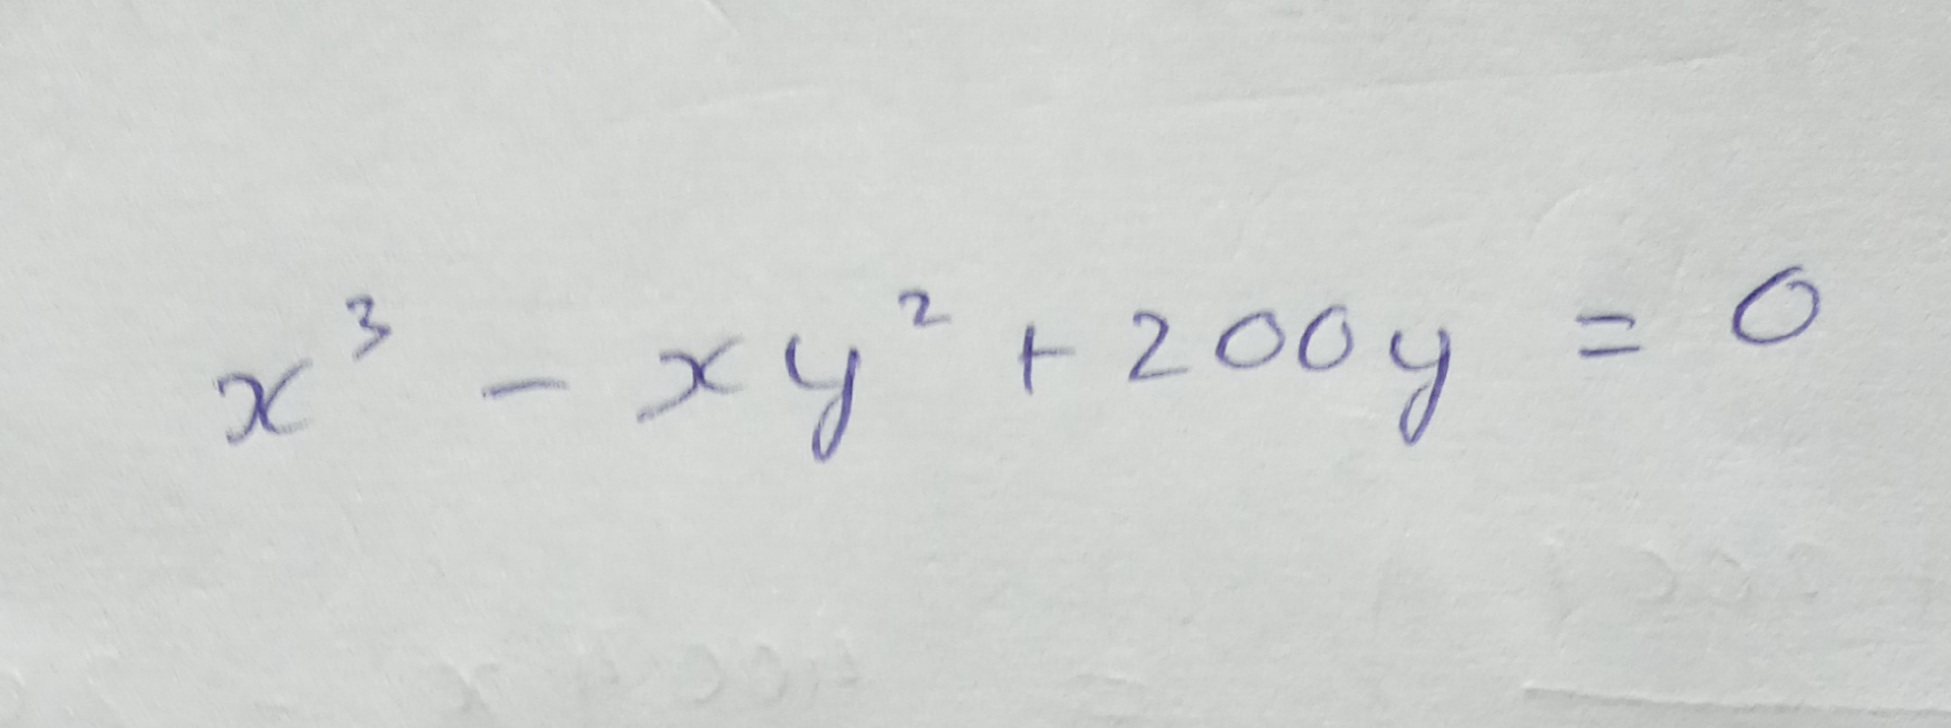 x³ - xy² + 200y = 0